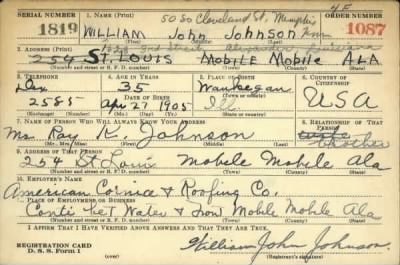 4F
SERIAL NUMBER 1. NAME (Print) 5050 Cleveland St. Memphis Tenn ORDER NUMBER
1819 WILLIAM John JOHNSON 1087
(First) (Middle) (Last)
2. ADDRESS (Print) 2nd Street Alexandria Louisiana
254 ST. LOUIS MOBILE Mobile ALA
(Number and street or R. F. D. number) (Town) (County) (State)
3. TELEPHONE 4. AGE IN YEARS 5. PLACE OF BIRTH 6. COUNTRY OF CITIZENSHIP
Dex 35 Waukegan
DATE OF BIRTH (Town or county) USA
2585 Apr 27 1905 Ill.
(Exchange) (Number) (Mo.) (Day) (Yr.) (State or country)
7. NAME OF PERSON WHO WILL ALWAYS KNOW YOUR ADDRESS 8. RELATIONSHIP OF THAT PERSON
Mr. Ray K. Johnson brother
(Mr., Mrs., Miss) (First) (Middle) (Last)
9. ADDRESS OF THAT PERSON
254 St Louis Mobile Mobile Ala
(Number and street or R. F. D. number) (Town) (County) (State)
10. EMPLOYER'S NAME
American Cornice & Roofing Co.
11. PLACE OF EMPLOYMENT OR BUSINESS
Conti bet Water & Mobile Mobile Ala
(Number and street or R. F. D. number) (Town) (County) (State)
I AFFIRM THAT I HAVE VERIFIED ABOVE ANSWERS AND THAT THEY ARE TRUE.
REGISTRATION CARD
D. S. S. Form 1 (over) William John Johnson
(Registrant's signature)